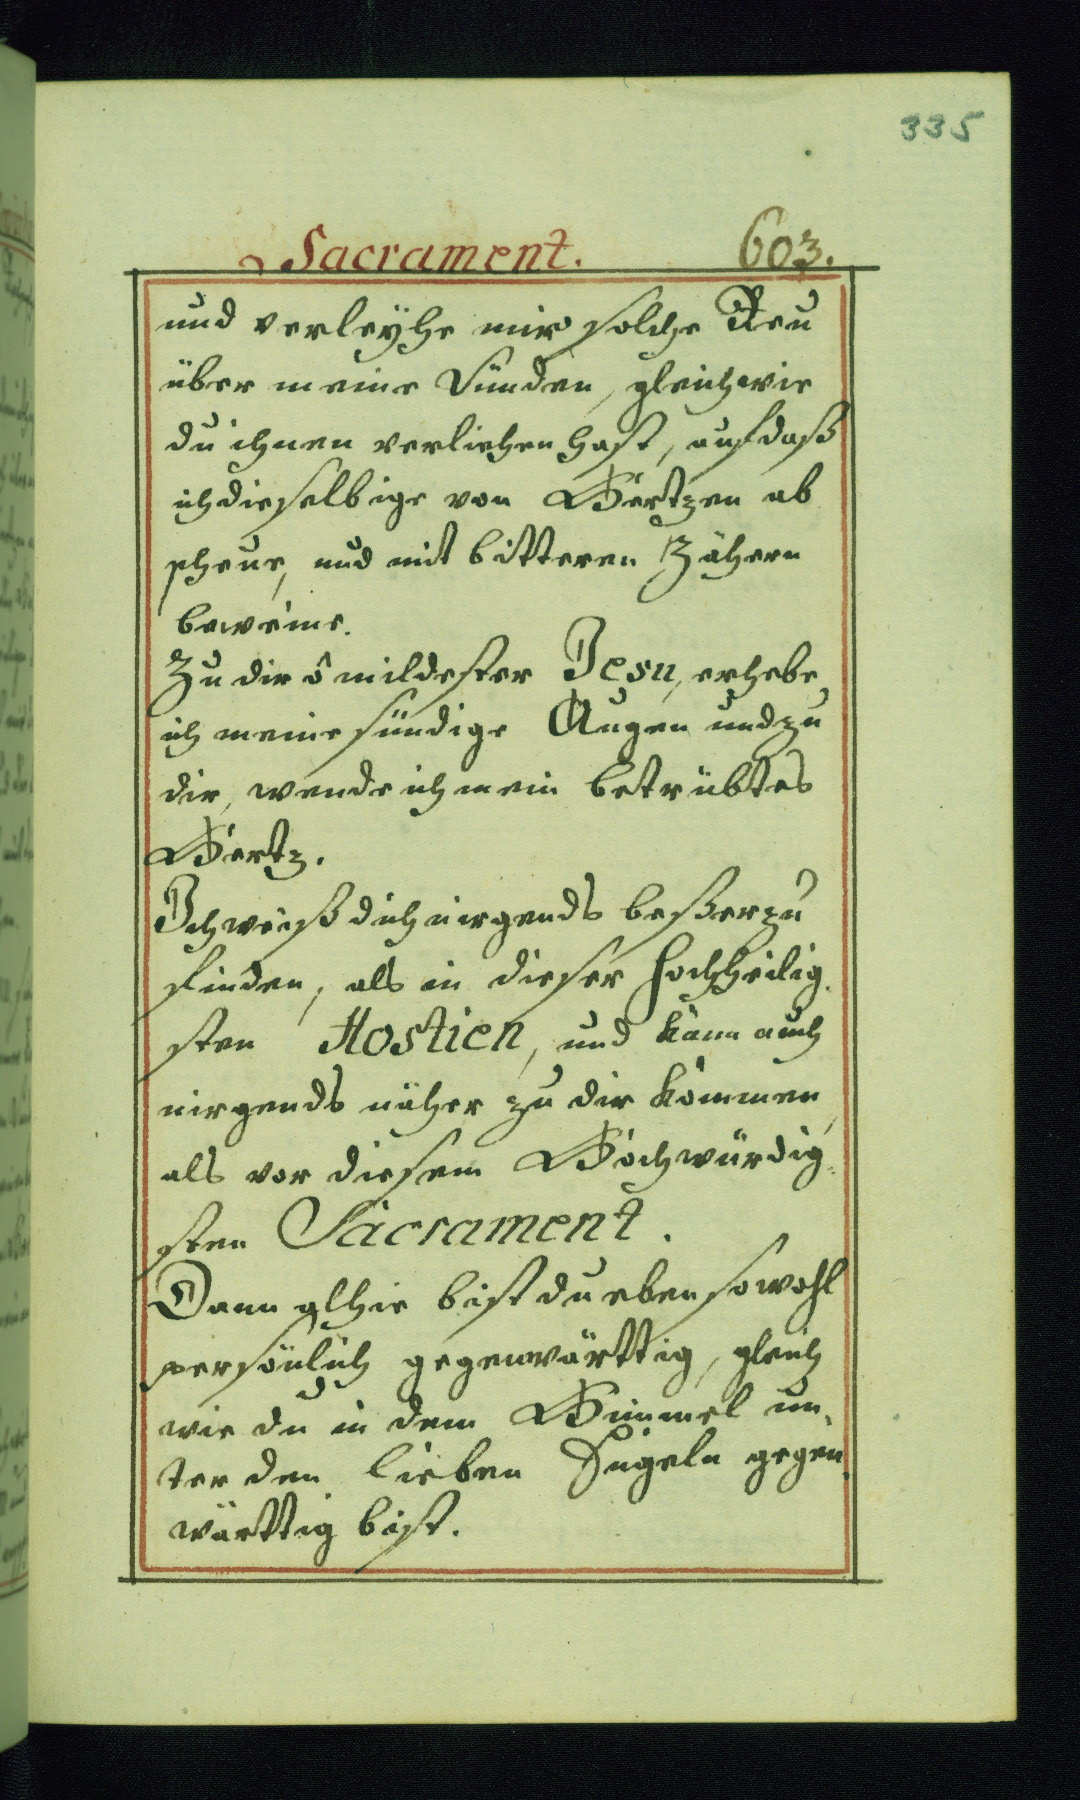 335
Sacrament. 603.
und verleÿhe mir solche Reu
über meine Sünden, gleichwie
du ihnen verliehen hast, auf daß
ich dieselbige von Hertzen ab
scheue, und mit bitteren Zähern
beweine.
Zu dir ô mildester Jesu, erhebe
ich meine sündige Augen und zu
dir, wende ich mein betrübtes
Hertz.
Ich weiß dich nirgends beßer zu
finden, als in dieser hochheilig,
sten Hostien, und kann auch
nirgends näher zu dir kommen,
als vor diesem Hochwürdig,
sten Sacrament.
Dann alhie bist du eben sowohl
persönlich gegenwärttig, gleich
wie du in dem Himmel un,
ter den lieben Engeln gegen,
wärttig bist.